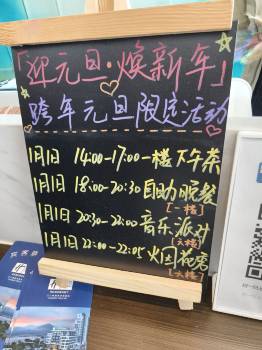 「迎元旦·焕新年」
跨年元旦限定活动
1月1日 14:00-17:00 一楼下午茶
1月1日 18:00-20:30 自助晚餐
[一楼]
1月1日 20:30-22:00 音乐派对
[六楼]
1月1日 22:00-22:05 火园花房
[六楼]